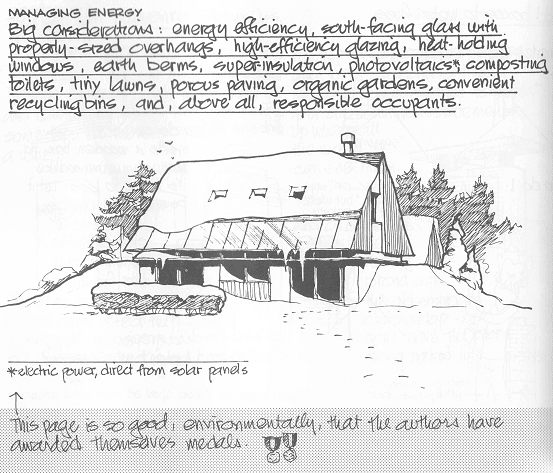 MANAGING ENERGY
Big considerations: energy efficiency, south-facing glass with
properly-sized overhangs, high-efficiency glazing, heat-holding
windows, earth berms, super-insulation, photovoltaics*, composting
toilets, tiny lawns, porous paving, organic gardens, convenient
recycling bins, and, above all, responsible occupants.
*electric power, direct from solar panels
This page is so good, environmentally, that the authors have
awarded themselves medals.